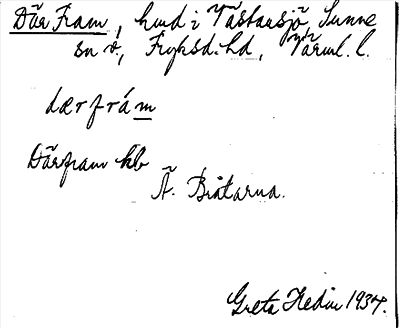 Där Fram, hmd i Västansjö, Sunne
sn o., Fryksd. hd, Värml. l.
dærfrám
Därfram kb
Ä. Bråtarna.
Greta Hedin 1934.